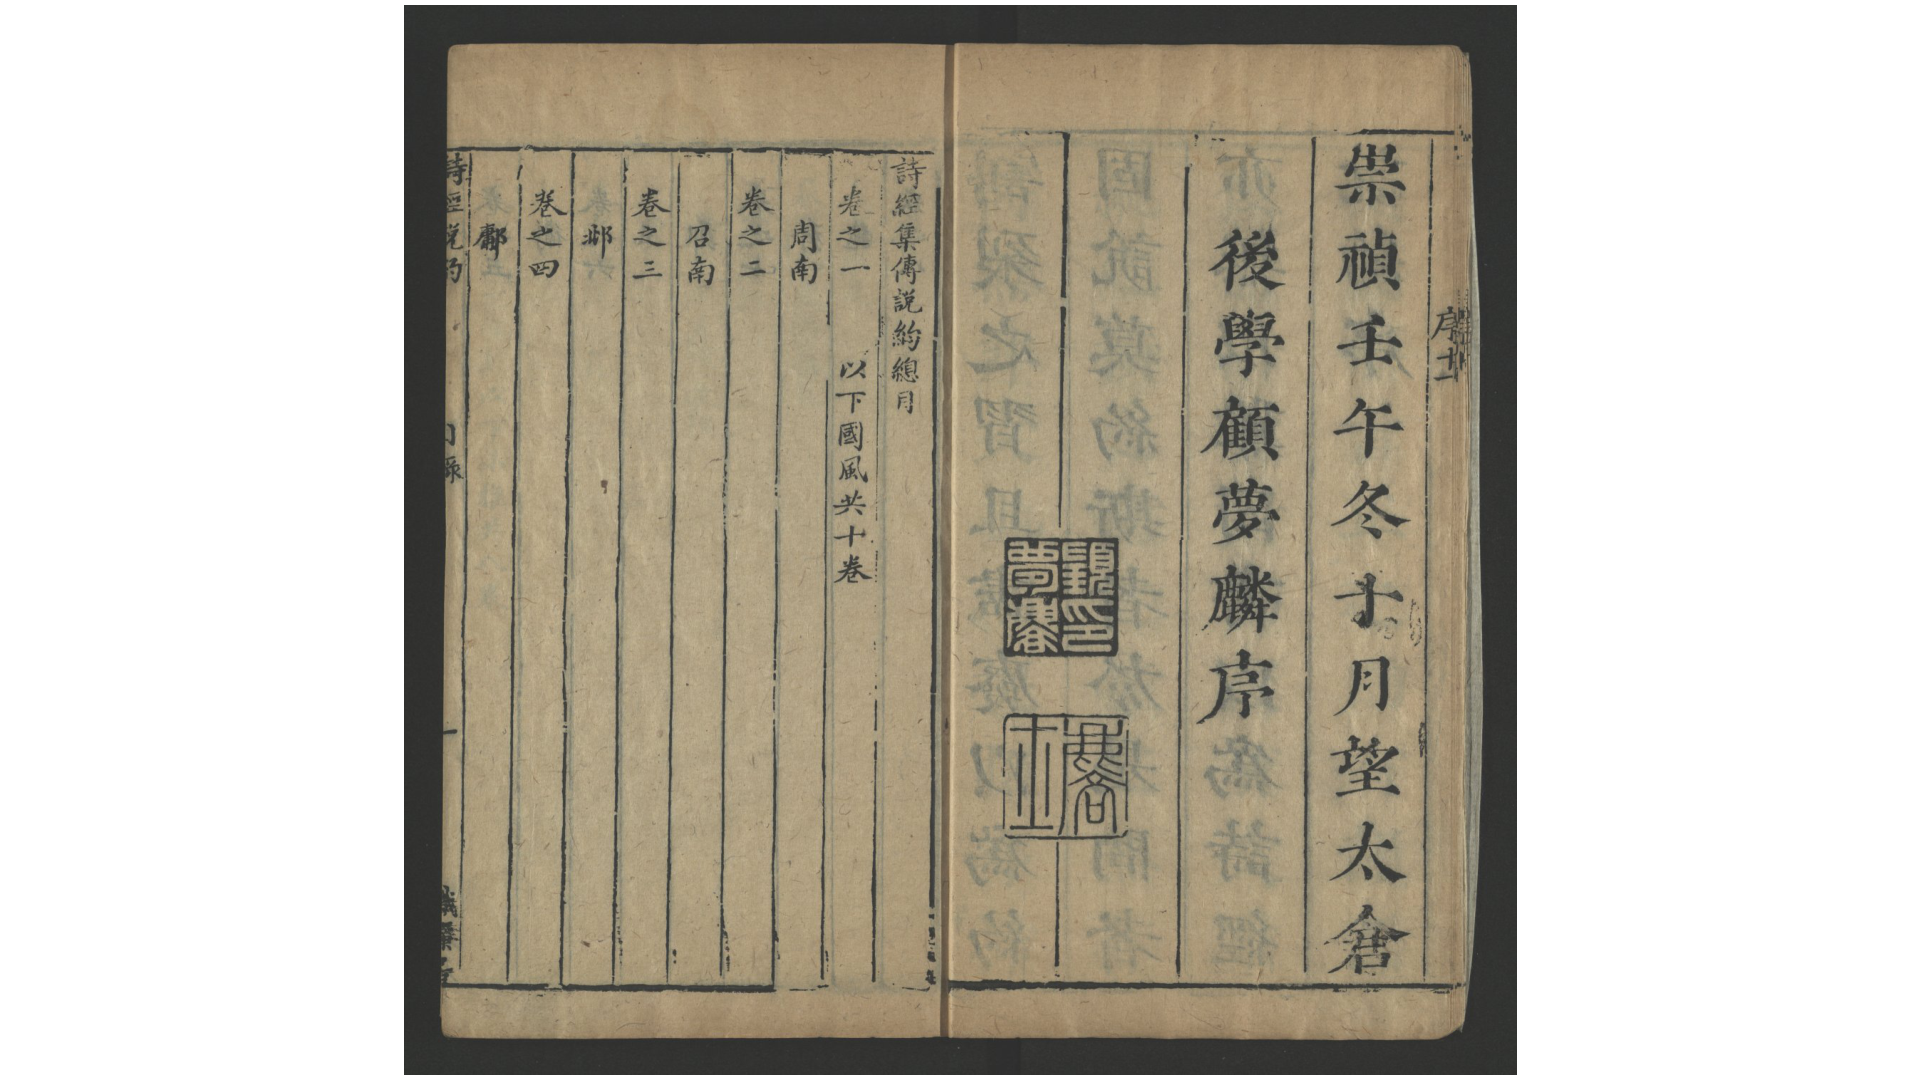 崇禎壬午冬十月望太倉
後學顧夢麟序
顧印夢麟
詩經集傳説約總目
卷之一 以下國風共十卷
周南
卷之二
召南
卷之三
邶
卷之四
鄘
詩經説約 目録 一